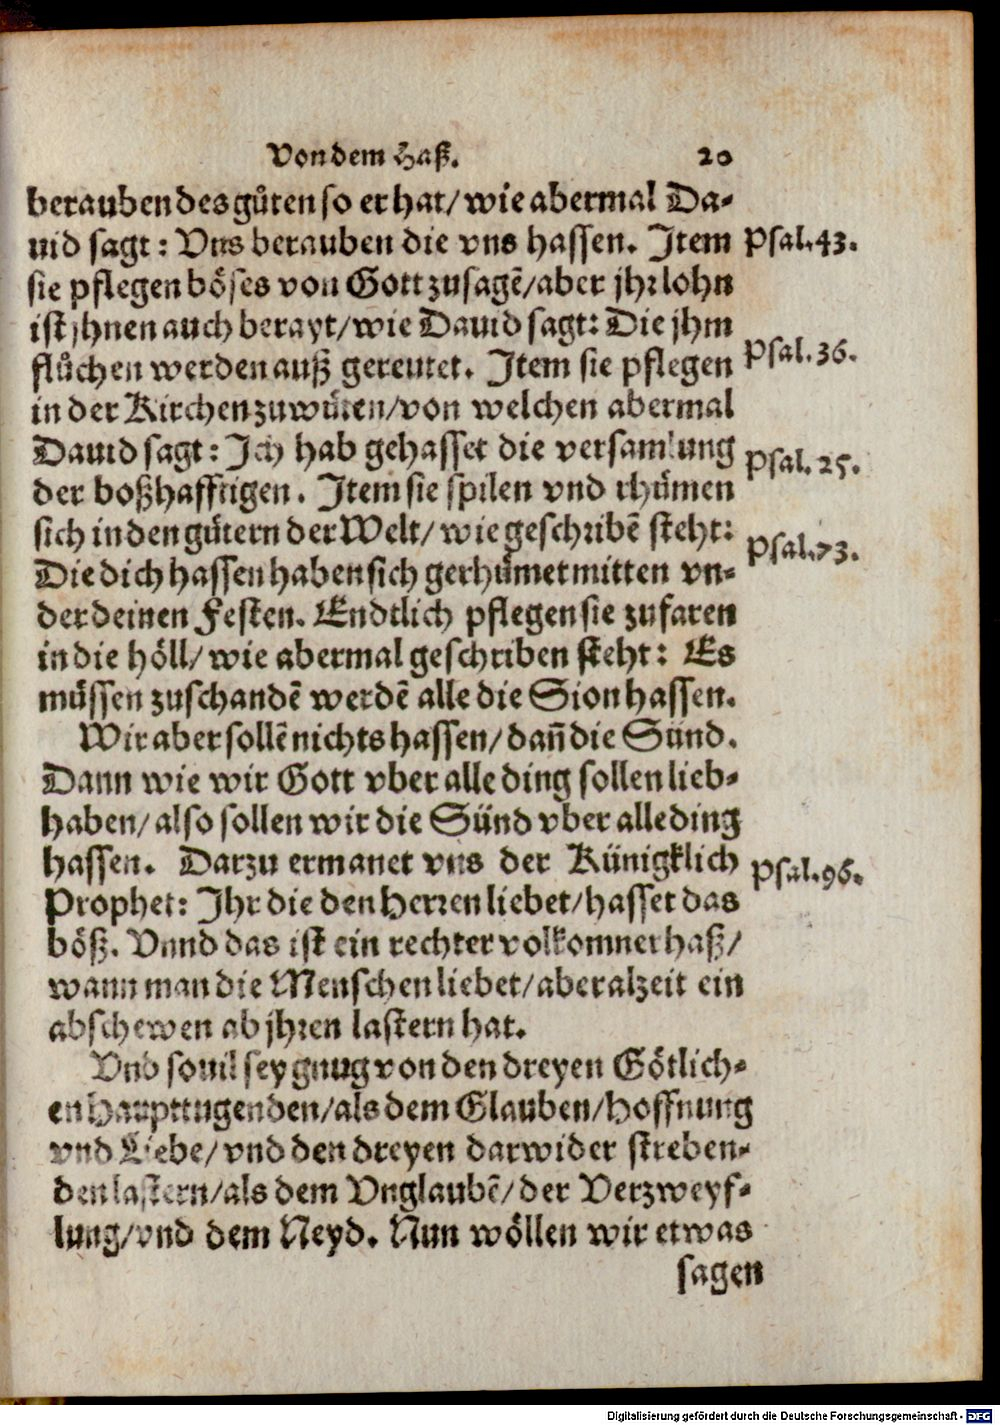 Von dem Haß. 20
berauben des gůten so er hat/ wie abermal Da-
uid sagt: Vns berauben die vns hassen. Item Psal. 43.
sie pflegen böses von Gott zusagẽ/ aber jhr lohn
ist jhnen auch berayt/ wie Dauid sagt: Die jhm
flůchen werden auß gereutet. Item sie pflegen Psal. 36.
in der Kirchen zu wüten/ von welchen abermal
Dauid sagt: Ich hab gehasset die versamlung Psal. 25.
der boßhafftigen. Item sie spilen vnd rhůmen
sich in den gůtern der Welt/ wie geschribẽ steht:
Die dich hassen haben sich gerhůmet mitten vn- Psal. 73.
der deinen Festen. Endtlich pflegen sie zufaren
in die höll/ wie abermal geschriben steht: Es
müssen zuschandẽ werdẽ alle die Sion hassen.
Wir aber sollẽ nichts hassen/ dañ die Sünd.
Dann wie wir Gott vber alle ding sollen lieb-
haben/ also sollen wir die Sünd vber alle ding
hassen. Darzu ermanet vns der Künigklich
Prophet: Ihr die den Herren liebet/ hasset das Psal. 96.
böß. Vnnd das ist ein rechter volkomner haß/
wann man die Menschen liebet/ aber alzeit ein
abschewen ab jhren lastern hat.
Vnd souil sey gnug von den dreyen Götlich-
en Haupttugenden/ als dem Glauben/ Hoffnung
vnd Liebe/ vnd den dreyen darwider streben-
den lastern/ als dem Vnglaubẽ/ der Verzweyf-
lung/ vnd dem Neyd. Nun wöllen wir etwas
sagen
Digitalisierung gefördert durch die Deutsche Forschungsgemeinschaft - DFG